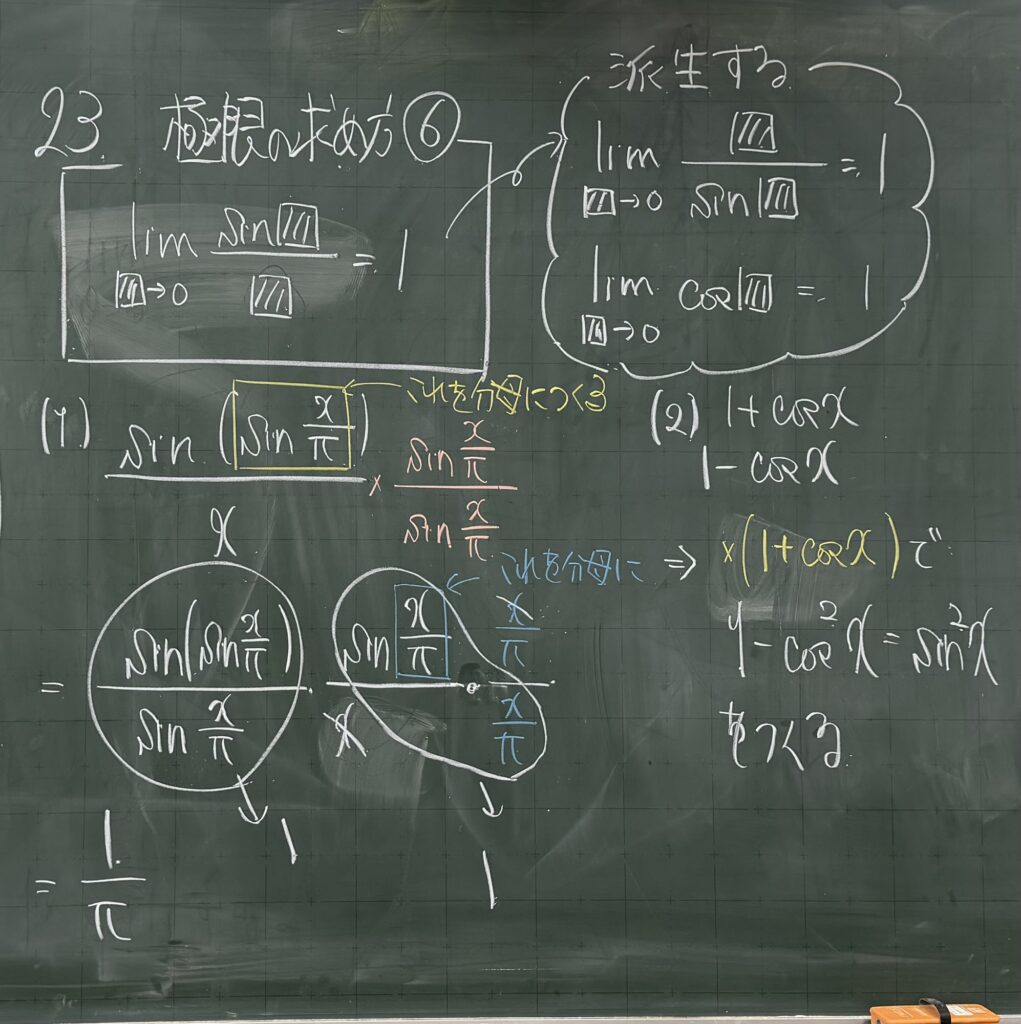 23. 極限の求め方⑥
lim sin▨ / ▨ = 1
▨→0
派生する
lim ▨ / sin▨ = 1
▨→0
lim cos▨ = 1
▨→0
(1) sin(sin x/π) / x × sin x/π / sin x/π
これを分母につくる
= sin(sin x/π) / sin x/π sin x/π / x ・ x/π / x/π
これを分母に
→ 1
→ 1
= 1/π
(2) 1+cosx
1-cosx
⇒ ×(1+cosx)で
1-cos²x = sin²x
をつくる